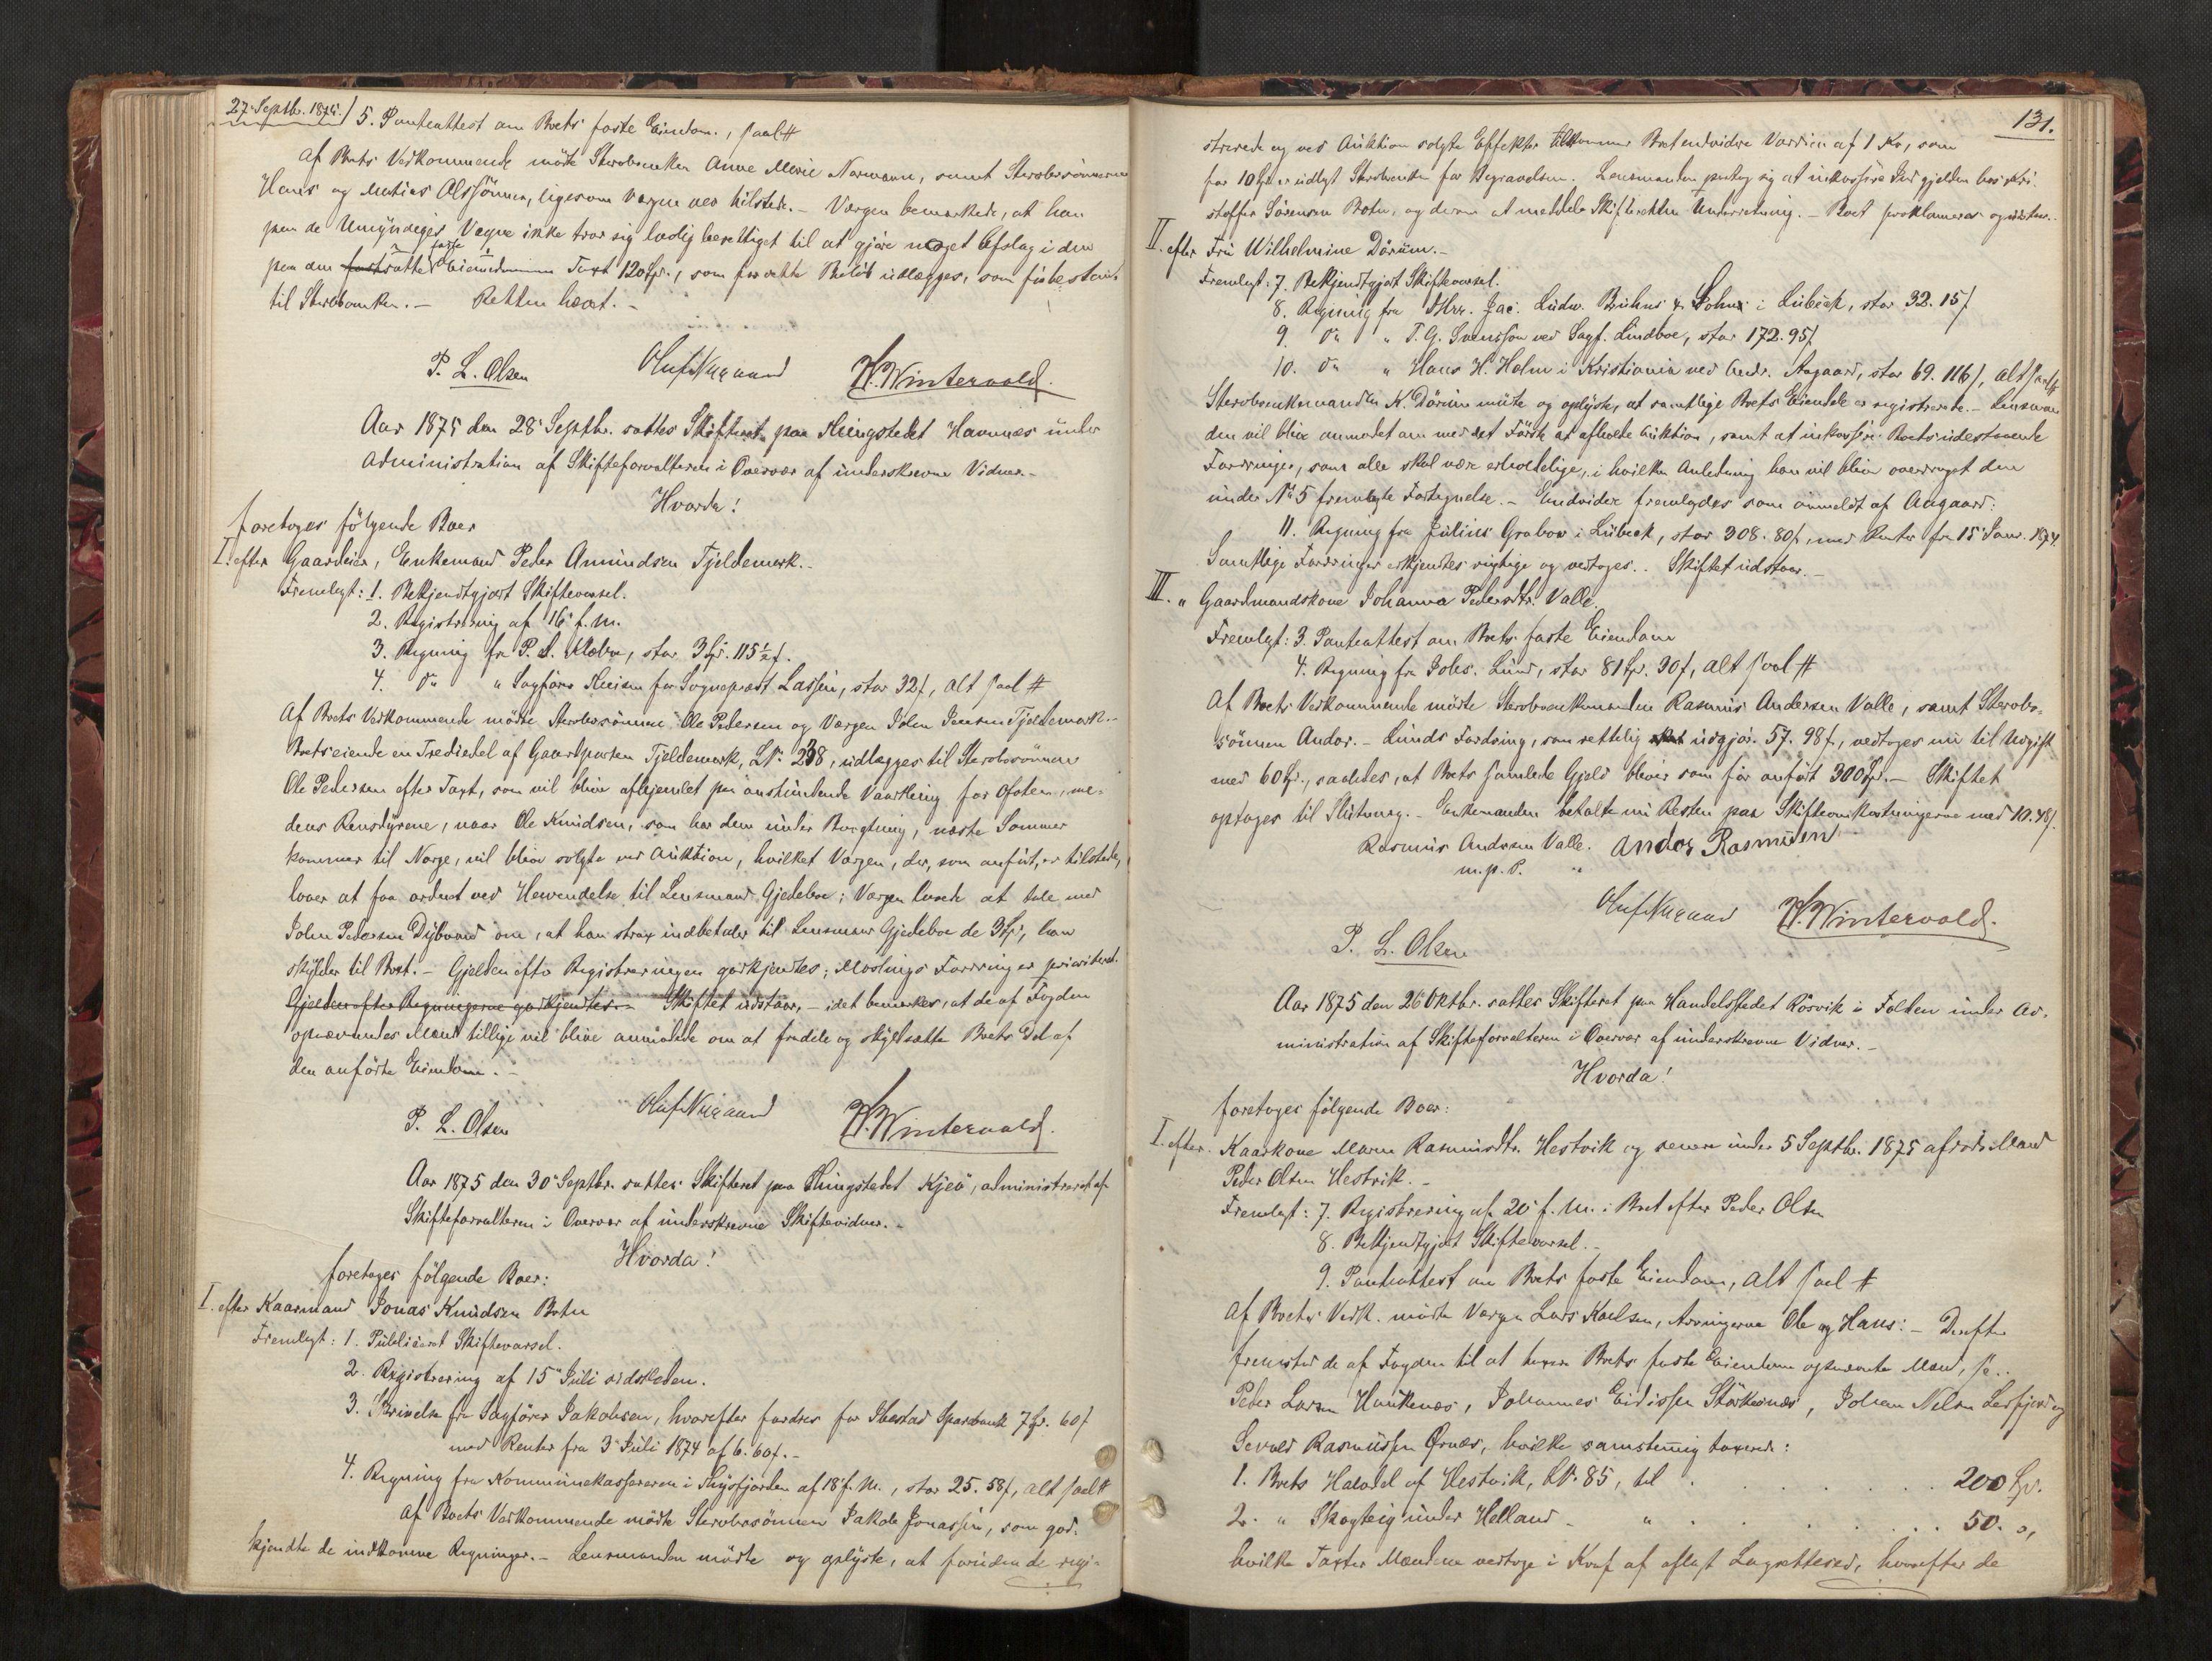 27 Septbr. 1875. / 5. Panteattest om Boets faste Eiendom., saal#
Af Boets Vedkommende mödte Sterboenken Anne Marie Normann, samt Sterbosönnerne
Hans og Matias Olssönner, ligesom Vergen var tilstede. – Vergen bemærkede, at han
paa de Umyndiges Vegne ikke tror sig lovlig berettiget til at gjöre noget Afslag i den
paa den faste Eiendom Taxt 120 Spd., som for dette Belöb udlægges, som
til Sterboenken. – Retten hævet. –
P. L. Olsen Oluf Nygaard H. Wintervold.
Aar 1875 den 28 Septbr. sattes Skifteret paa Thingstedet Havnnæs under
Administration af Skifteforvalteren i Overvær af underskrevne Vidner. –
Hvorda!
foretoges fölgende Boer
I. efter Gaardeier, Enkemand Peder Amundsen Tjeldemark. –
Fremlagt: 1. Bekjendtgjort Skiftevarsel.
2. Registrering af 16 f. M.
3. Regning fra P. A. Klæboe, stor 3 Spd. 115½ s.
4. Do " Sagförer for Sogneprest Lassen, stor 32 s, alt saal #
Af Boets Vedkommende mödte Sterbosönnen Ole Pedersen og Vergen John Jensen Tjeldemark. –
Boets eiende en Trediedel af Gaardparten Tjeldemark, LNo 238, udlægges til Sterbosönnen
Ole Pedersen efter Taxt, som vil blive afhjemlet paa anstundende Vaarthing for Ofoten, me-
dens Rensdyrene, naar Ole Knudsen, som har dem under Bevogtning, næste Sommer
kommer til Norge, vil blive solgte ved Auktion, hvilket Vergen, der, som anfört, er tilstede,
lover at faa ordnet ved Henvendelse til Lensmand Gjedeboe; Vergen lovede at tale med
John Pedersen Dybvand om, at han strax indbetaler til Lensmand Gjedeboe de 3 Spd, han
skylder til Boet. – Gjelden efter Registreringen godkjendtes; Moslings Fordring er prioriteret.
Gjelden efter Regningerne godkjendtes. – Skiftet udstaar, – idet bemærkes, at de af Fogden
opnævnendes Mænd tillige vil blive anmodede om at fradele og skyldsætte Boets Del af
den anförte Eiendom. –
P. L. Olsen Oluf Nygaard H. Wintervold.
Aar 1875 den 30 Septbr. sattes Skifteret paa Thingstedet Kjeö, administreret af
Skifteforvalteren i Overvær af underskrevne Skiftevidner. –
Hvorda!
foretoges fölgende Boer:
I. efter Kaarmand Jonas Knudsen Botn
Fremlagt: 1. Publiceret Skiftevarsel.
2. Registrering af 15 Juli sidstleden.
3. Skrivelse fra Sagförer Jakobsen, hvorefter fordres for Ibestad Sparebank 7 Spd. 60 s
med Renter fra 3 Juli 1874 af 6. 60 s. –
4. Regning fra Kommunekassereren i Thysfjorden af 18 f. M., stor 25. 58 s, alt saal #
Af Boets Vedkommende mödte Sterbosönnen Jakob Jonassen, som god-
kjendte de indkomne Regninger. – Lensmanden mödte og oplyste, at foruden de regi-
131.
strerede og ved Auktion solgte Effekter tilkommer Boet endvidere Værdien af 1 Ko, som
for 10 Spd. er udlagt Sterboenken for Begravelsen. Lensmanden paatog sig at inkassere hos Kri-
stoffer Sörensen Botn, og derom at meddele Skifteretten Underretning. – Boet proklameres og udstaar. –
II. efter Fru Wilhelmine Dörum. –
Fremlagt: 7. Bekjendtgjort Skiftevarsel.
8. Regning fra Hrr. Jac. Ludw. Bruhns & Sohn i Lübeck, stor 32. 15 s
9. Do " T. G. Svenssen ved Sagf. Lindboe, stor 172. 95 s
10. Do " Hans H. Holm i Kristiania ved Andr. Aagaard, stor 69. 116 s, alt saal#
Sterboenkemanden K. Dörum mödte og oplyste, at samtlige Boets Eiendele er registrerede. – Lensman-
den vil blive anmodet om med det Förste at afholde Auktion, samt at inkassere Boets udestaaende
Fordringer, som alle skal være erholdelige, i hvilken Anledning han vil blive overdraget den
under No 5 fremlagte Fortegnelse. – Endvidere fremlagdes som anmeldt af Aagaard:
11. Regning fra Julius Grabow i Lübeck, stor 308. 80 s, med Renter fra 15 Janr. 1874.
Samtlige Fordringer erkjendtes rigtige og vedtoges. . Skiftet udstaar. –
III. " Gaardmandskone Johanna Pedersdtr. Valle.
Fremlagt: 3. Panteattest om Boets faste Eiendom
4. Regning fra Johs. Lund, stor 81 Spd. 30 s, alt saal #
Af Boets Vedkommende mödte Sterboenkemanden Rasmus Andersen Valle, samt Sterbo-
sönnen Andor. – Lunds Fordring, som rettelig udgjör 57. 98 s, vedtoges nu til Udgift
med 60 Spd., saaledes, at Boets samlede Gjeld bliver som för anfört 300 Spd. – Skiftet
optages til Slutning. – Enkemanden betalte nu Resten paa Skifteomkostningerne med 10. 48 s.
Rasmus Andersen Valle. Andor Rasmusen
m. p. P.
Oluf Nygaard H. Wintervold.
P. L. Olsen
Aar 1875 den 26 Oktbr. sattes Skifteret paa Handelsstedet Rösvik i Folden under Ad-
ministration af Skifteforvalteren i Overvær af underskrevne Vidner. –
Hvorda!
foretoges fölgende Boer:
I. efter. Kaarkone Maren Rasmusdtr. Hestvik og senere under 5 Septbr. 1875 afdöde Mand
Peder Olsen Hestvik. –
Fremlagt: 7. Registrering af 20 f. M. i Boet efter Peder Olsen
8. Bekjendtgjort Skiftevarsel. –
9. Panteattest om Boets faste Eiendom, alt saal #
Af Boets Vedk. mödte Vergen Lars Karlsen, Arvingerne Ole og Hans: – Derefter
fremstod de af Fogden til at taxere Boets faste Eiendom opnævnte Mænd, sc..
Peder Larsen Haukenæs, Johannes Eidissen Störkesnæs, Johan Nelsen Leifjord og
Sevald Rasmussen Örnæs, hvilke samstemmig taxerede:
1. Boets Halvdel af Hestvik, LNo. 85, til . . . . . . . . 200 Spd.
2. " Skogteig under Helland – " . . . . . . . 50. "
hvilke Taxter Mændene vedtoge i Kraf af aflagt Lagrettesed, hvorefter de